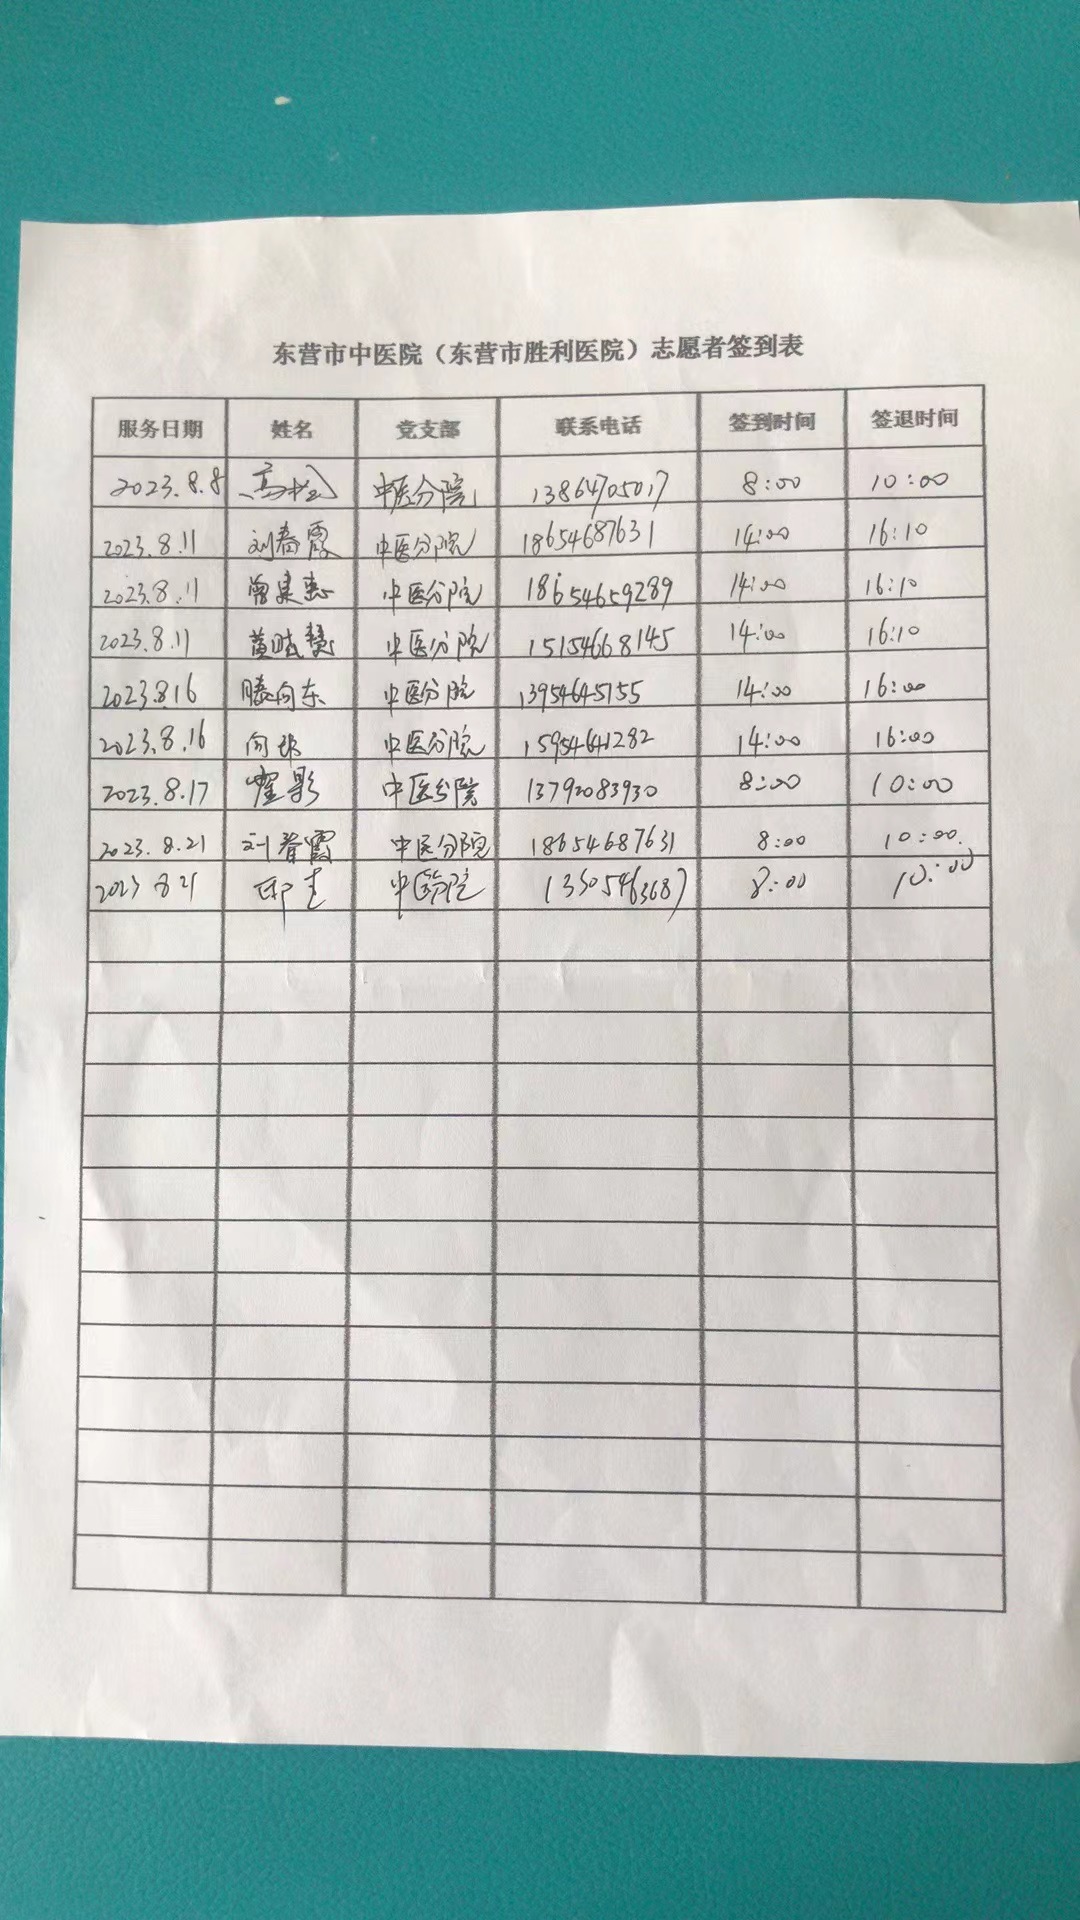 东营市中医院（东营市胜利医院）志愿者签到表
服务日期 姓名 党支部 联系电话 签到时间 签退时间
2023.8.8 中医分院 13864705017 8:00 10:00
2023.8.11 刘春霞 中医分院 18654687631 14:00 16:10
2023.8.11 曾建慧 中医分院 18654659289 14:00 16:10
2023.8.11 黄 慧 中医分院 15154668145 14:00 16:10
2023.8.16 滕向东 中医分院 13954645155 14:00 16:00
2023.8.16 向 中医分院 15954641282 14:00 16:00
2023.8.17 影 中医分院 13792083930 8:00 10:00
2023.8.21 刘春霞 中医分院 18654687631 8:00 10:00
2023 8 21 中医分院 13305463687 8:00 10:00